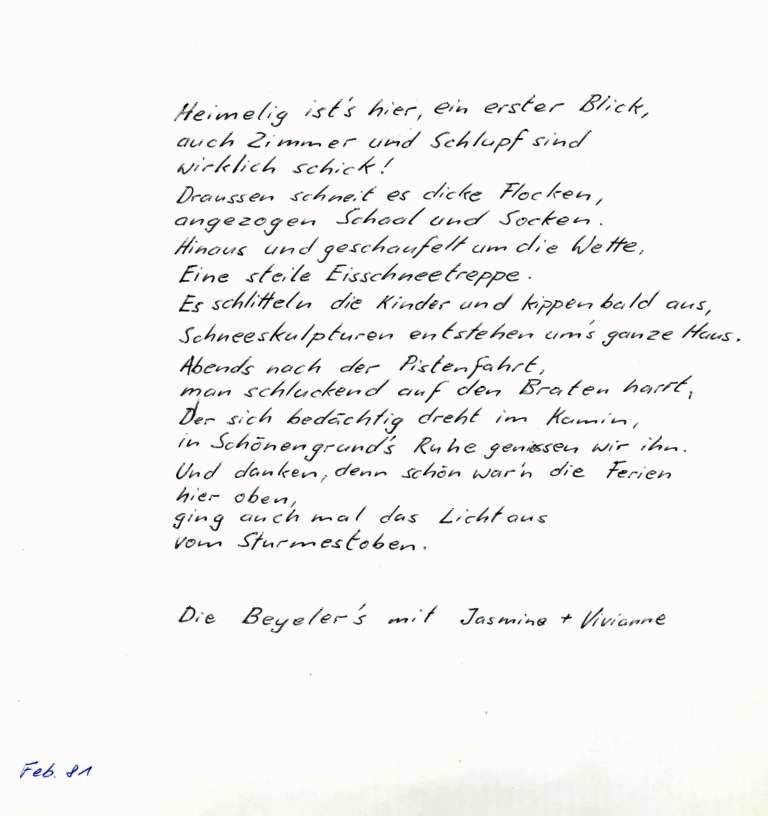 Heimelig ist's hier, ein erster Blick,
auch Zimmer und Schlupf sind
wirklich schick!
Draussen schneit es dicke Flocken,
angezogen Schaal und Socken.
Hinaus und geschaufelt um die Wette,
Eine steile Eisschneetreppe.
Es schlitteln die Kinder und kippen bald aus,
Schneeskulpturen entstehen um's ganze Haus.
Abends nach der Pistenfahrt,
man schluckend auf den Braten harrt,
Der sich bedächtig dreht im Kamin,
in Schönengrund's Ruhe geniessen wir ihn.
Und danken, denn schön war'n die Ferien
hier oben,
ging auch mal das Licht aus
vom Sturmestoben.
Die Beyeler's mit Jasmine + Vivianne
Feb. 81